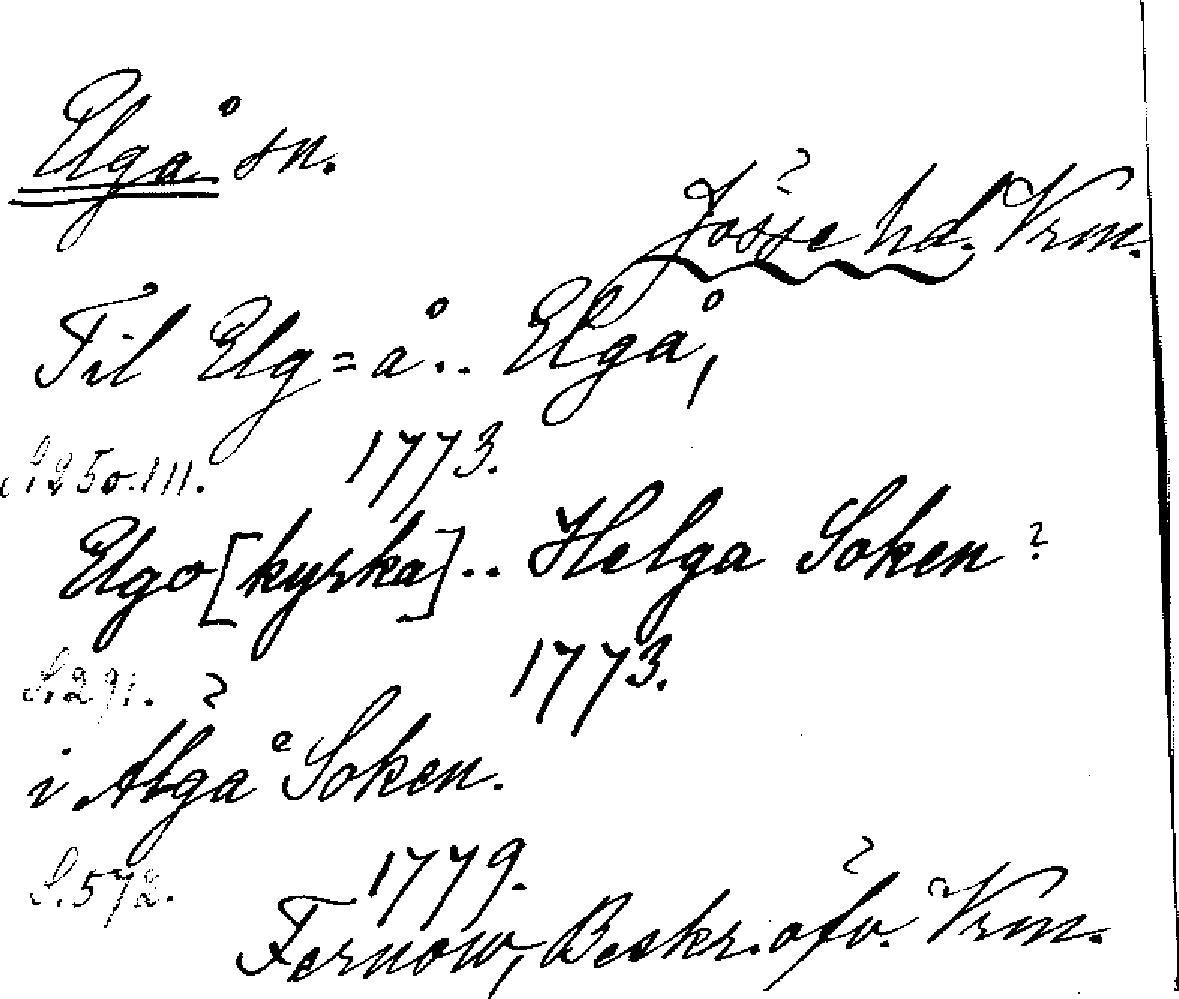 Elgå sn.
Jösse hd. Vrm.
Til Elg=å.. Elgå,
S. 250. III. 1773.
Elgo [kyrka].. Helga Soken?
S. 291. 1773.
i Älgå Soken.
S. 572. 1779.
Fernow, Beskr. öfv. Vrm.